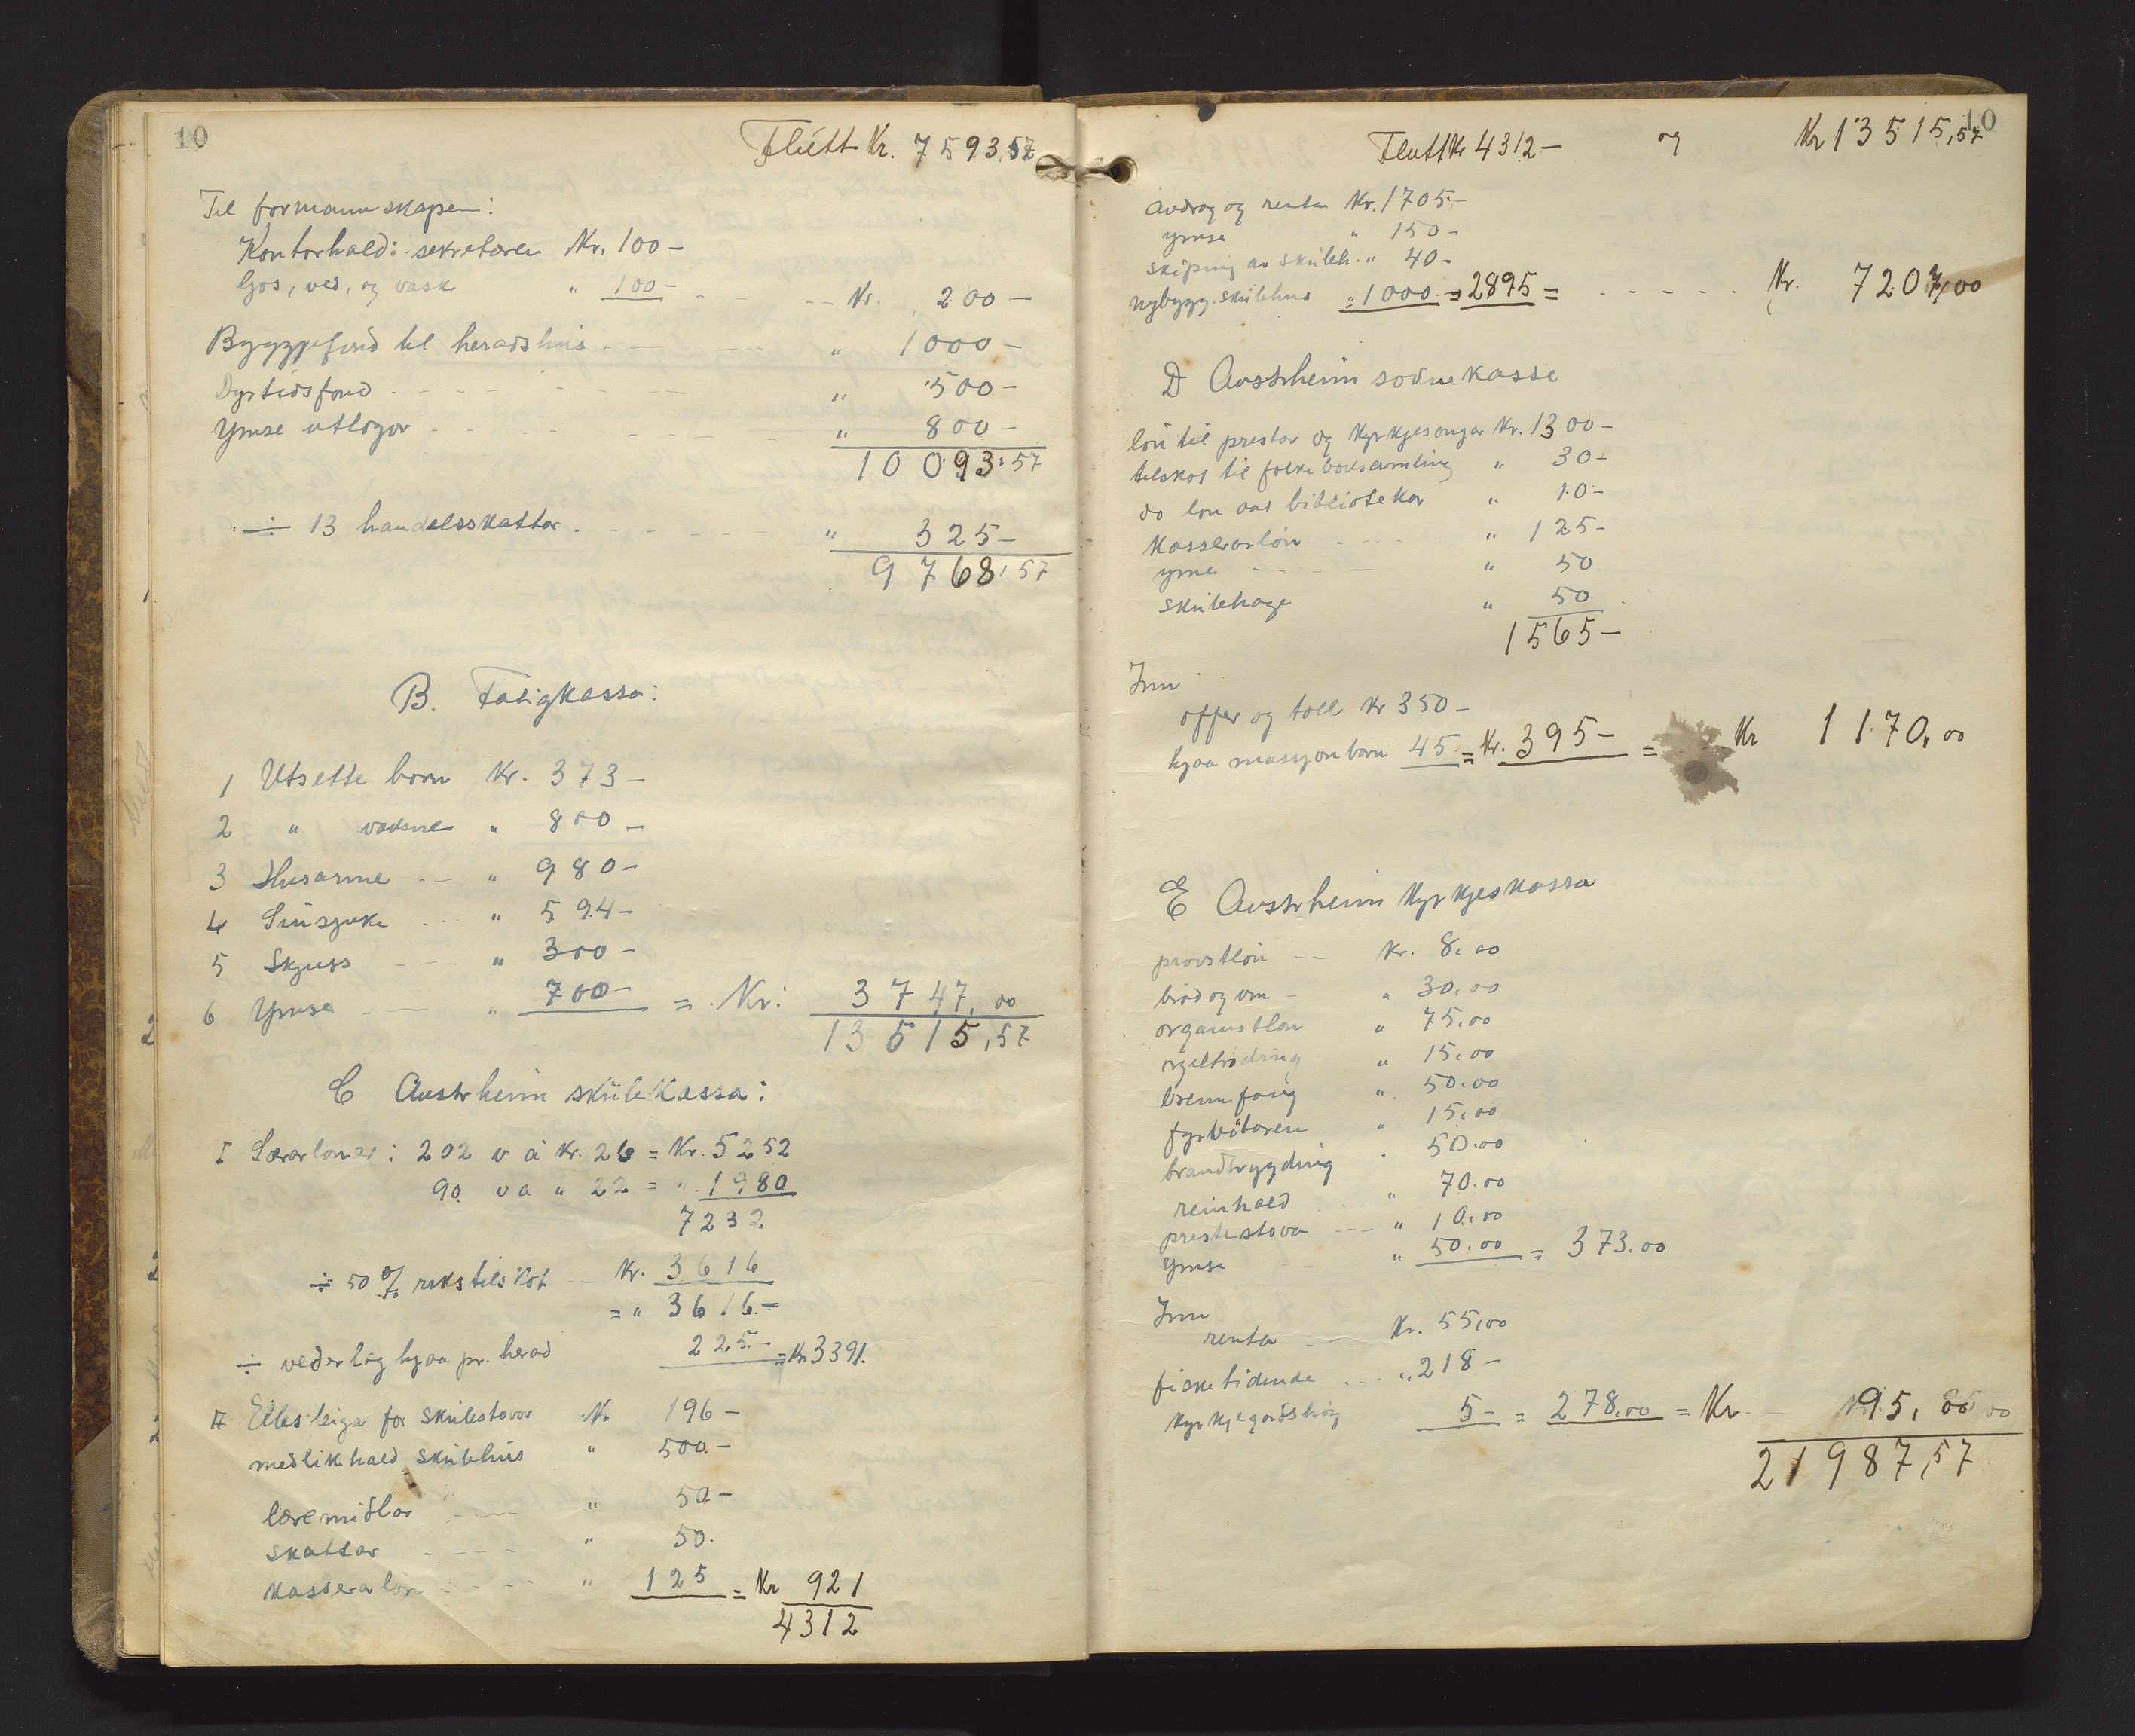 10
Flutt Kr. 7593,57
Til formannskapen:
Kontorhald: sekretæren Kr. 100 –
ljos, ved, og vask " 100 – - - - Kr. 200 –
Byggjefond til heradshus - - - " 1000 –
Dyrtidsfond - - - - " 500 –
Ymse utlogor - - - - " 800 –
10093,57
÷ 13 handelsskattar - - - - " 325 –
9768,57
B. Fatigkassa:
1 Utsette born Kr. 373 –
2 " vaksne " 800 –
3 Husarme - - " 980 –
4 Sinsjuke - - " 594 –
5 Skyss - - " 300 –
6 Ymse - - " 700 – = Kr: 3747,00
13515,57
C Austrheim skulekassa:
I Lærarloner: 202 v à Kr. 26 = Kr. 5252
90 v a " 22 = " 1980
7232
÷ 50 % rikstilskot - Kr. 3616
= " 3616 –
÷ vederlag hjaa pr. herad 225 – = Kr 3391.
II Elles leiga for skulestovor Kr 196 –
medlikehald skulehus " 500 –
læremidlar - - - " 50 –
skattar - - - " 50.
kasseralon - - - " 125 = Kr 921
4312
10
Flutt Kr 4312 – og Kr 13515,57
avdrag og rentor Kr. 1705 –
ymse " 150 –
skiping av skuleh. " 40 –
nybygg. skulehus " 1000 – = 2895 = - - - - - Kr. 7207,00
D Austrheim soknekasse
lon til prestar og kyrkjesongar Kr. 1300 –
tilskot til folkeboksamling " 30 –
do lon aat bibliotekar " 10 –
kasserarlon - - - " 125 –
ymse - - - - " 50
skulehage " 50
1565 –
Inn
offer og toll Kr 350 –
hjaa massjonborn 45 = Kr. 395 – = Kr 1170,00
E Austrheim kyrkjeskassa
provstlon - - Kr. 8,00
brod og vin - " 30,00
organistlon " 75,00
orgeltroding " 15,00
brennfang " 50,00
fyrbotaren " 15,00
brandtrygding " 50,00
reinhald - - " 70,00
prestestova - - - " 10,00
Ymse - - " 50,00 = 373,00
Inn
renta - - Kr. 55,00
fisketidende - - - " 218 –
kyrkjegardshog 5 – = 278,00 = Kr - 95,00
21987,57